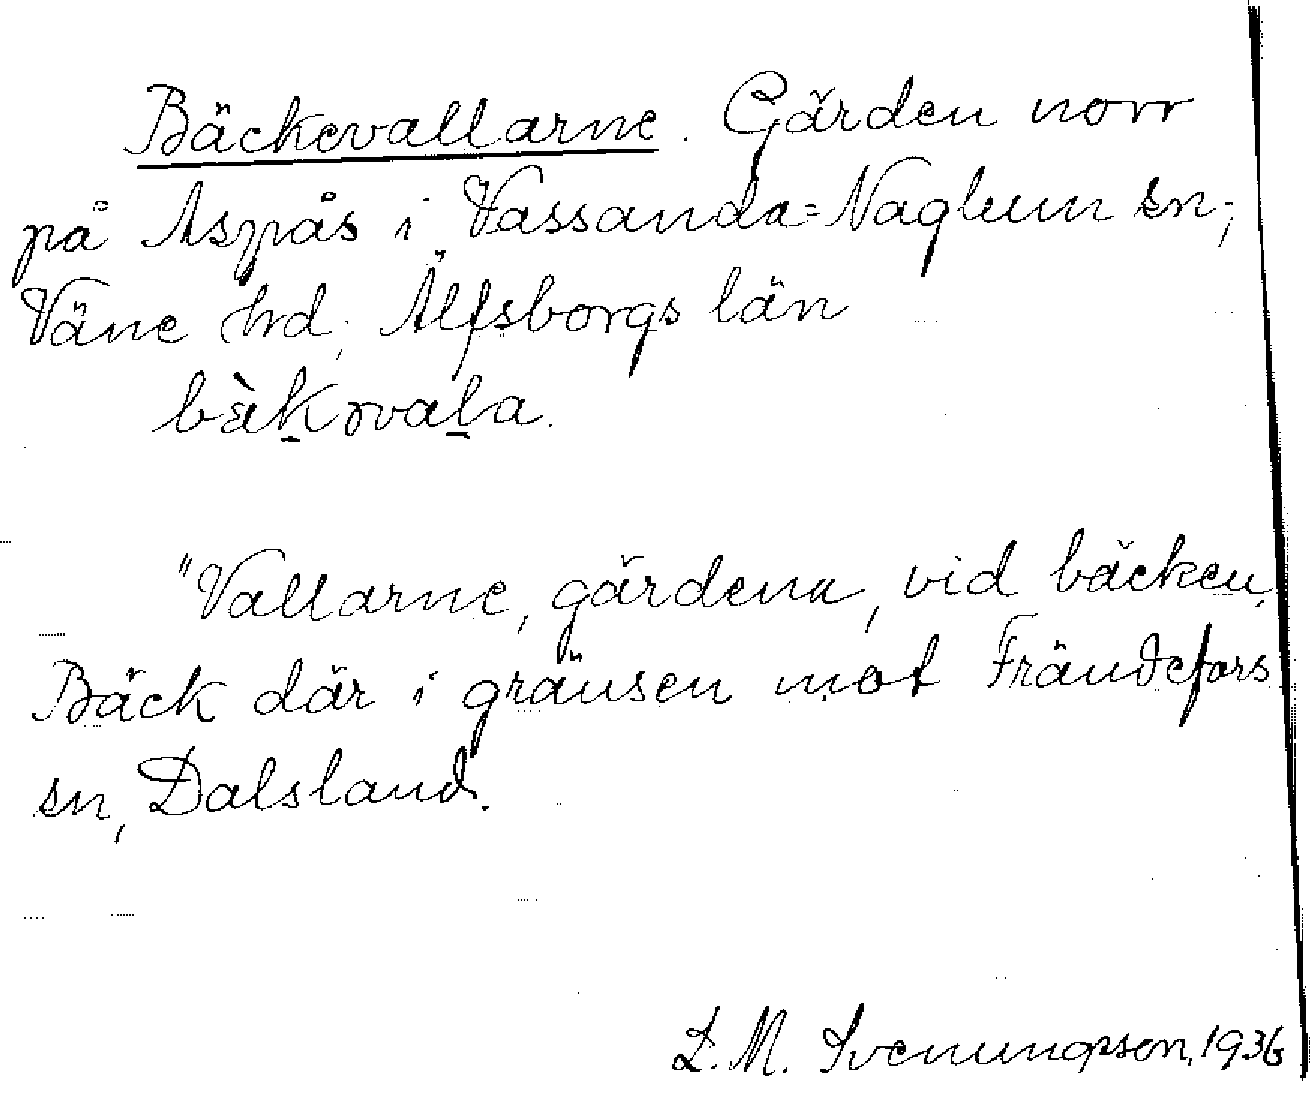 Bäckevallarne. Gärden norr
på Aspås i Vassanda=Naglum sn,
Väne hd, Älfsborgs län
bàkɤvala.
"Vallarne, gärdena, vid bäcken.
Bäck där i gränsen mot Frändefors
sn, Dalsland.
L. M. Svenungsson, 1936